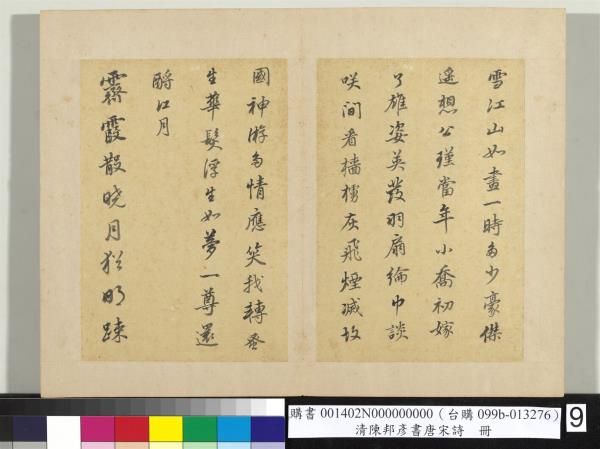 雪江山如畫一時多少豪傑
遙想公瑾當年小喬初嫁
了雄姿英發羽扇綸巾談
咲間看檣櫓灰飛煙滅故
國神游多情應笑我轉蚤
生華髮浮生如夢一尊還
酹江月
霽霞散曉月猶明疎
購書 001402N000000000 (台購 099b-013276)
清陳邦彥書唐宋詩 冊
9